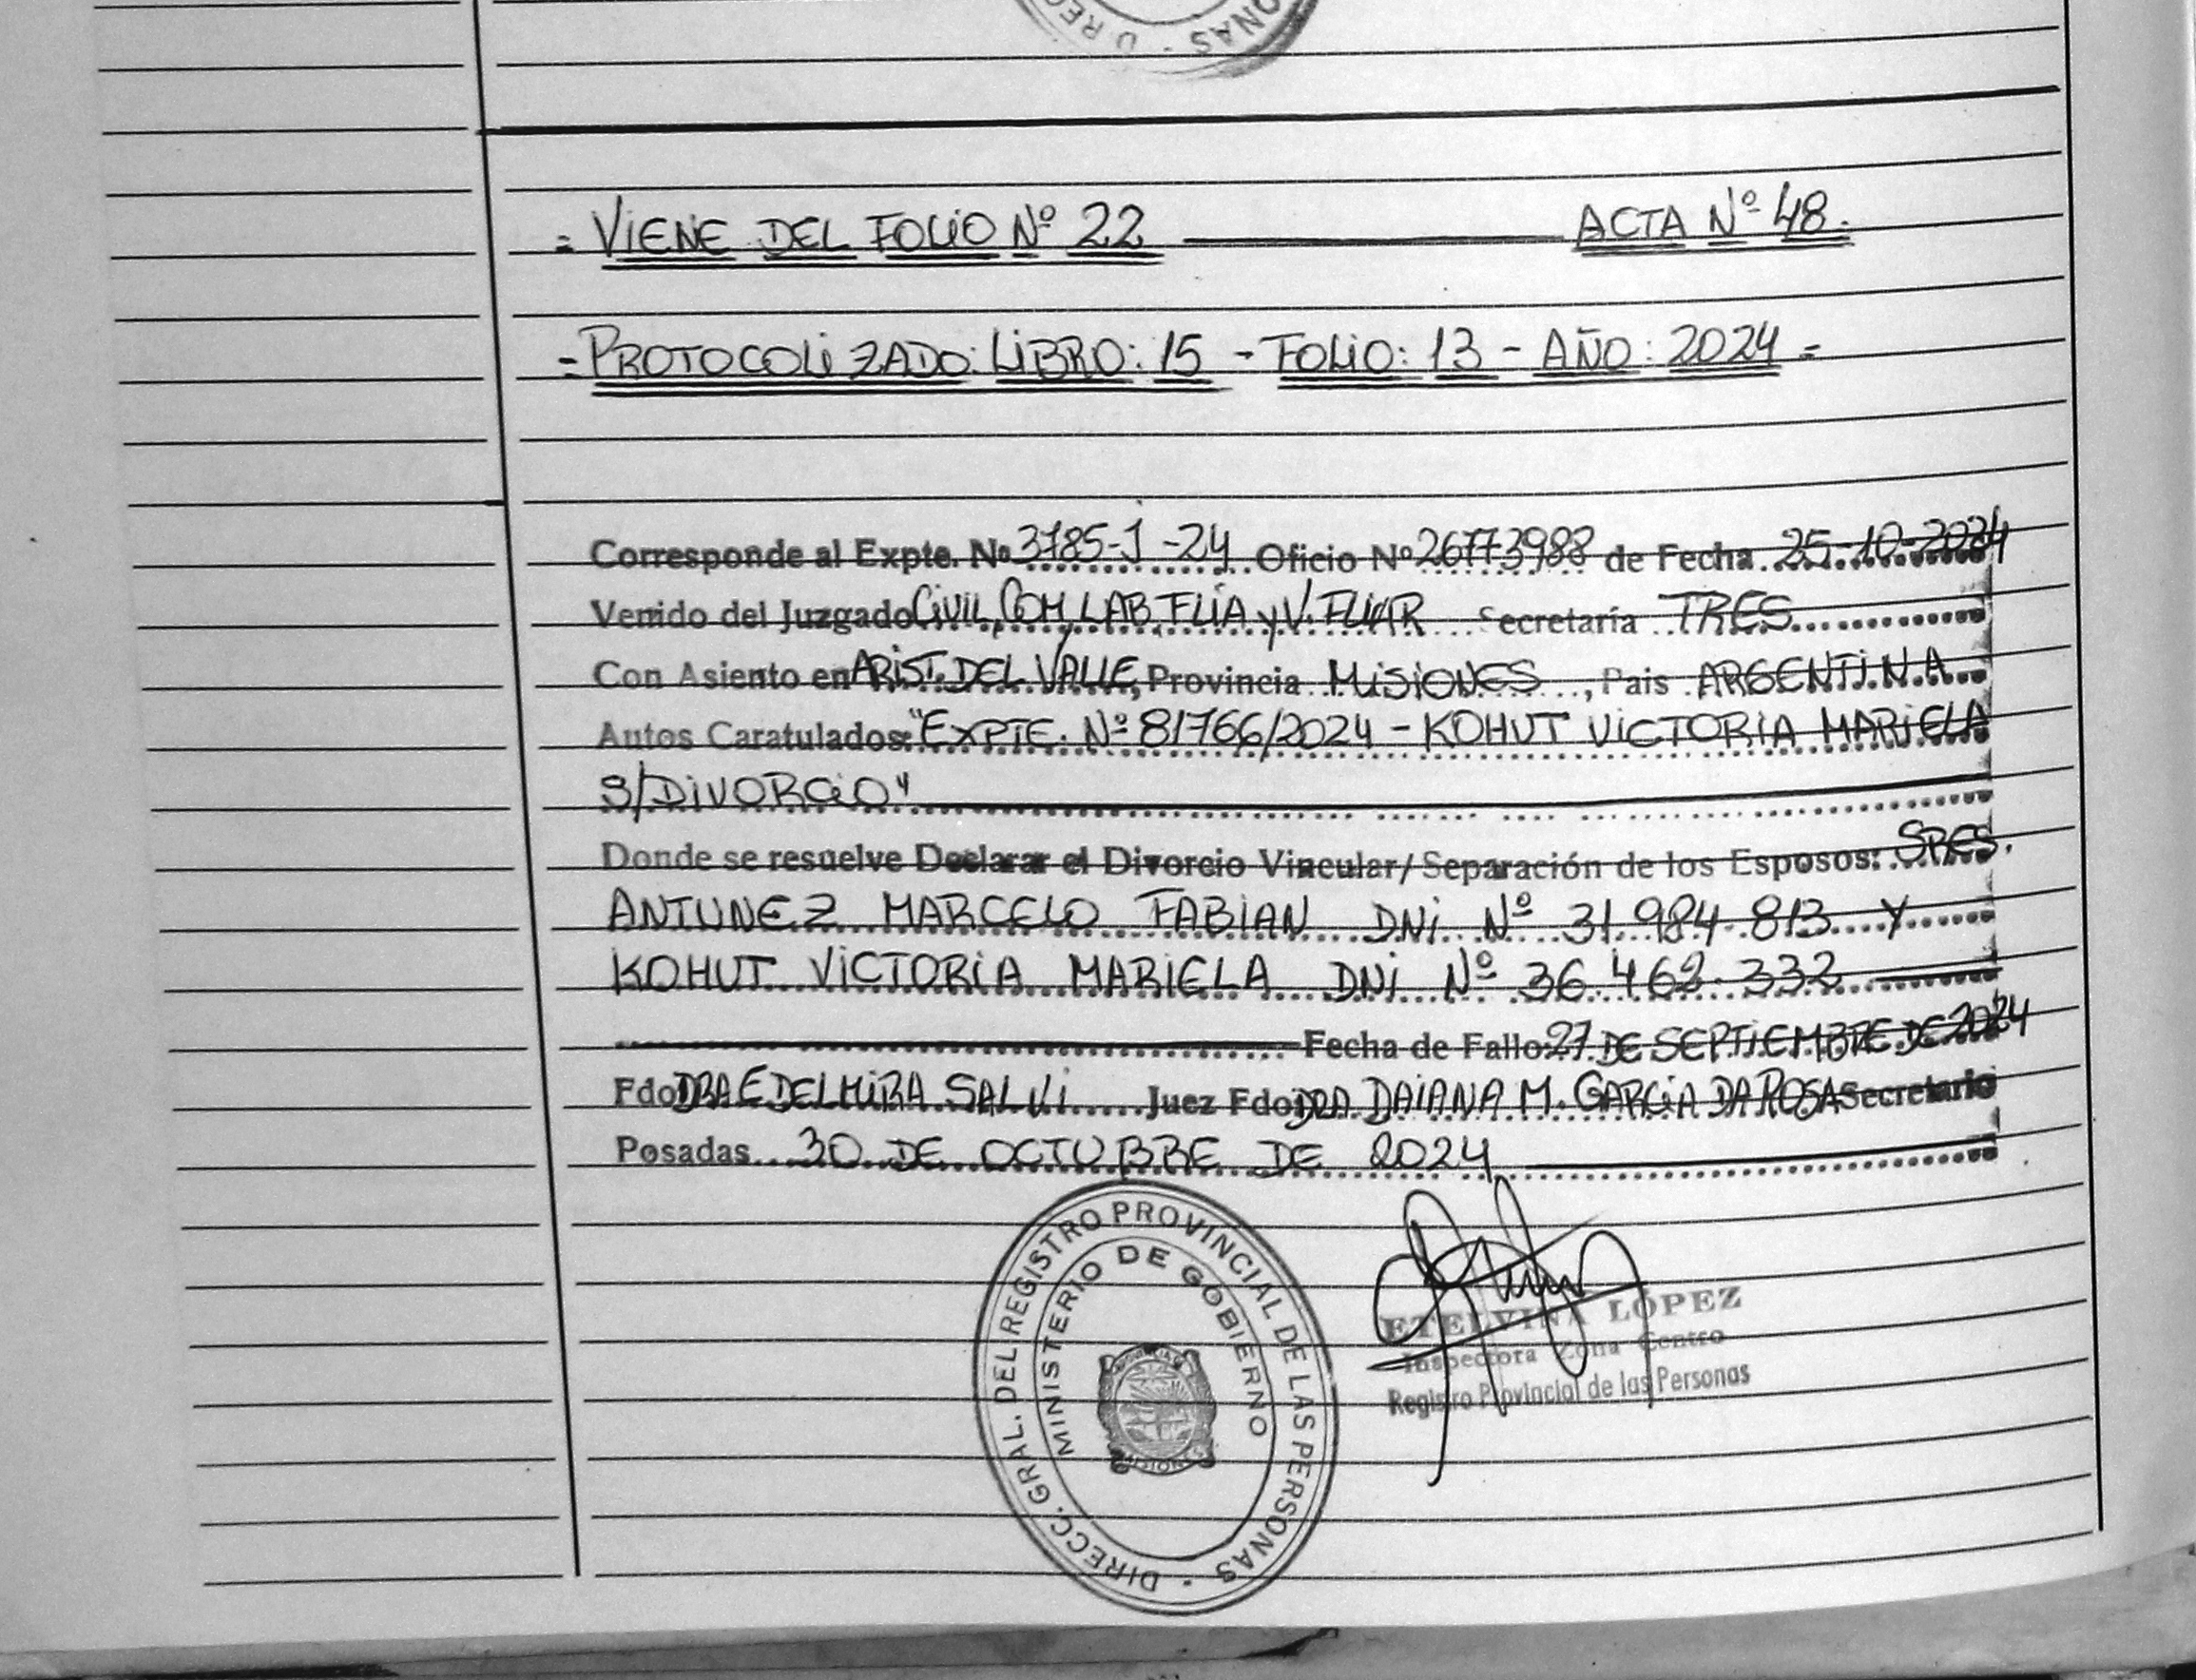 DIREC
ONAS
= VIENE DEL FOLIO Nº 22 ACTA Nº 48.
= PROTOCOLIZADO: LIBRO: 15 - FOLIO: 13 - AÑO: 2024 =
Corresponde al Expte. Nº 3785-J-24 Oficio Nº 26773988 de Fecha 25-10-2024
Venido del Juzgado CIVIL, COM, LAB, FLIA y V. FLIAR Secretaría TRES
Con Asiento en ARIST. DEL VALLE, Provincia MISIONES, Pais ARGENTINA
Autos Caratulados: "EXPTE. Nº 81766/2024 - KOHUT VICTORIA MARIELA
S/DIVORCIO"
Donde se resuelve Declarar el Divorcio Vincular/Separación de los Esposos: SRES.
ANTUNEZ MARCELO FABIAN DNI Nº 31.984.813 Y
KOHUT VICTORIA MARIELA DNI Nº 36.462.332
Fecha de Fallo: 27 DE SEPTIEMBRE DE 2024
Fdo: DRA EDELMIRA SALVI Juez Fdo: DRA DAIANA M. GARCIA DA ROSA Secretario
Posadas 30 DE OCTUBRE DE 2024
DIRECC. GRAL. DEL REGISTRO PROVINCIAL DE LAS PERSONAS
MINISTERIO DE GOBIERNO
MISIONES
ETELVINA LÓPEZ
Inspectora Zona Centro
Registro Provincial de las Personas